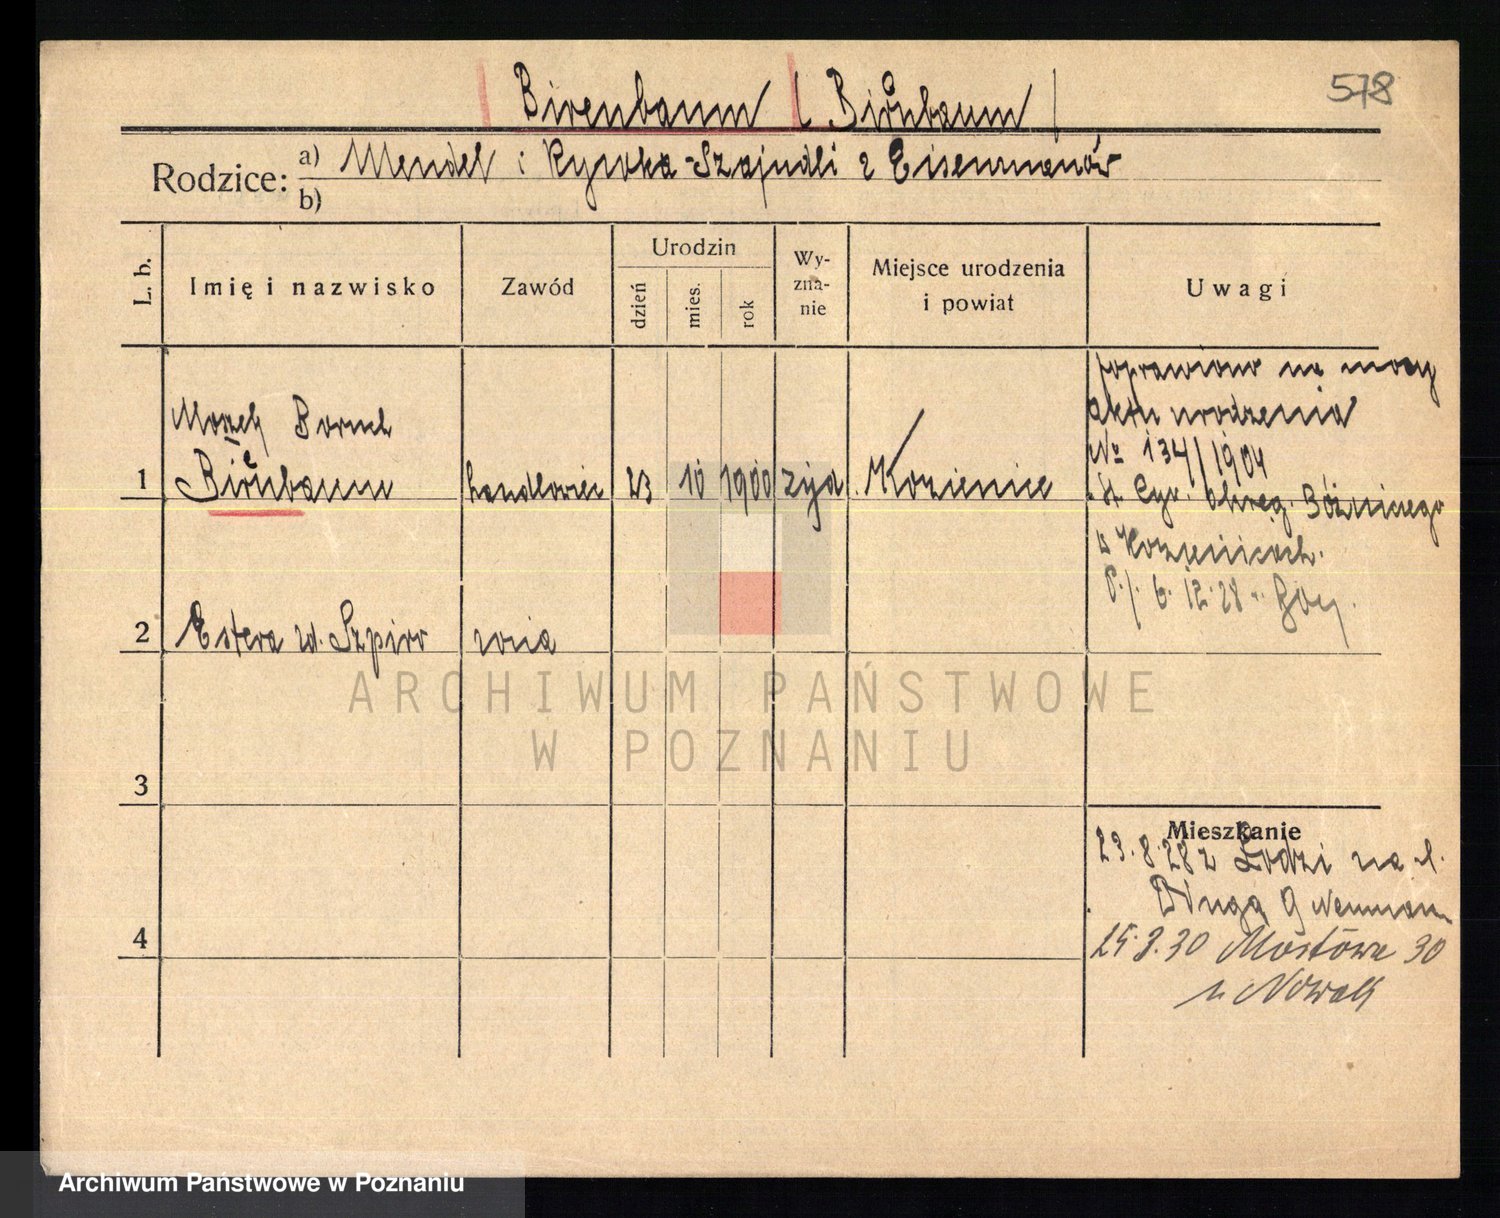 578
Birenbaum (Birnbaum)
Rodzice: a) Mendel i Rywka-Szajndli z Eisenmanów
b)
L. b.
Imię i nazwisko
Zawód
Urodzin
dzień
mies.
rok
Wy-
zna-
nie
Miejsce urodzenia
i powiat
Uwagi
1
Moszek Boruch
Birnbaum
handlowiec
23
10
1900
żyd.
Kozienice
poprawiono na mocy
aktu urodzenia
№ 134/1904
St. Cyw. okręg. Bóżniczego
w Kozienicach.
6.12.28
2
Estera zd. Szpiro
żona
3
4
Mieszkanie
23.8.28 z Łodzi na ul.
Długą 9 Neuman
25.3.30 Mostowa 30
u Nowak
ARCHIWUM PAŃSTWOWE
W POZNANIU
Archiwum Państwowe w Poznaniu